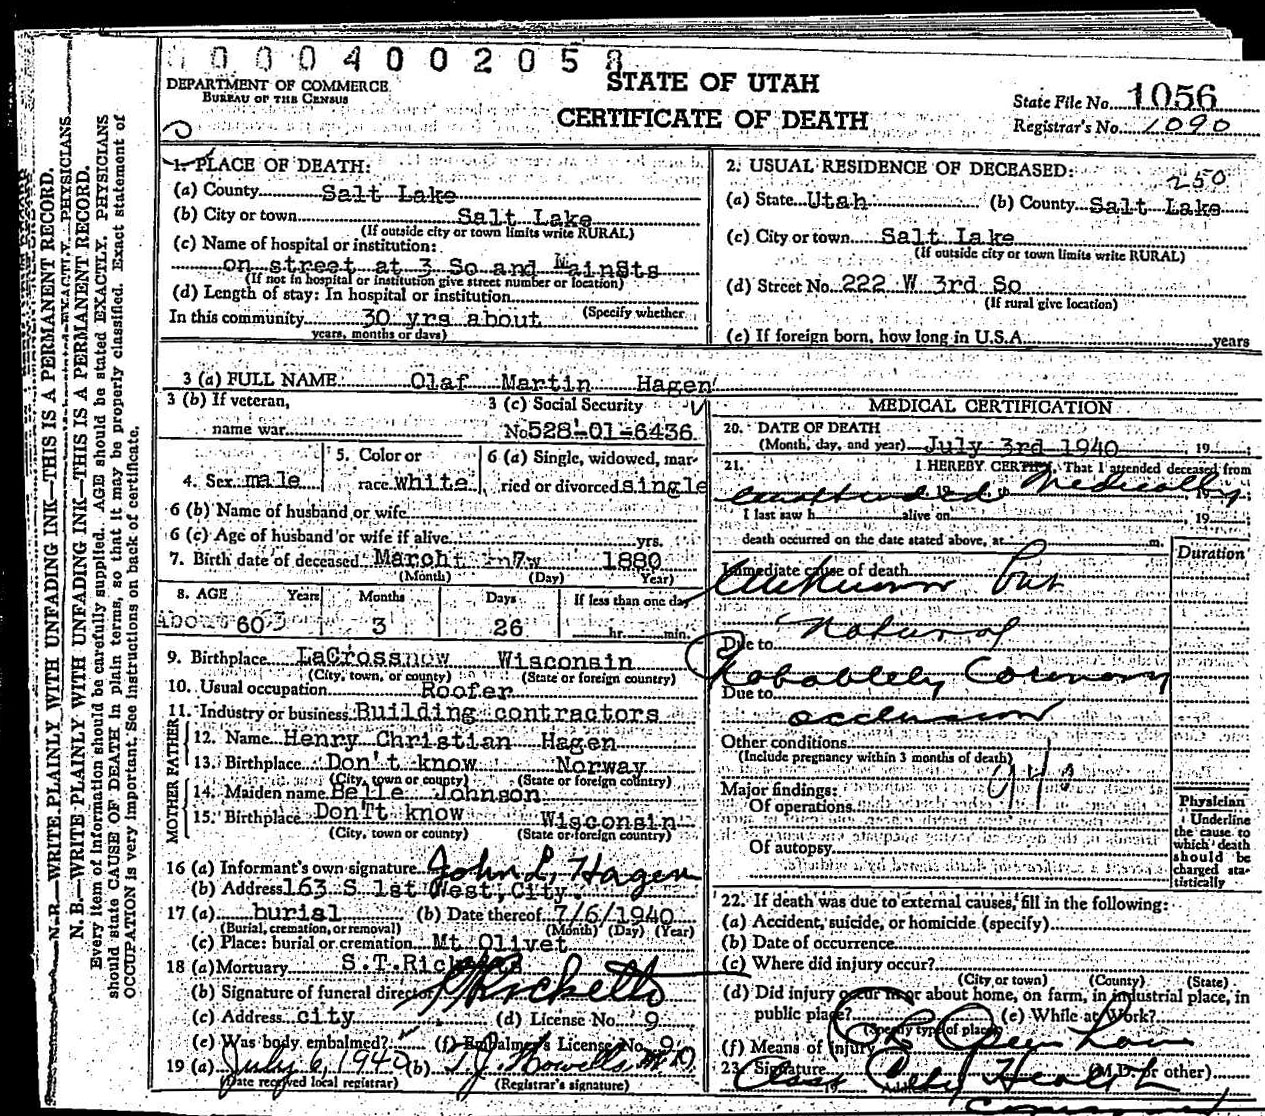 0 0 0 4 0 0 2 0 5 8
DEPARTMENT OF COMMERCE
BUREAU OF THE CENSUS
STATE OF UTAH
CERTIFICATE OF DEATH
State File No. 1056
Registrar's No. 1090
N. B.—WRITE PLAINLY WITH UNFADING INK—THIS IS A PERMANENT RECORD.
N. B.—WRITE PLAINLY WITH UNFADING INK—THIS IS A PERMANENT RECORD.
Every item of information should be carefully supplied. AGE should be stated EXACTLY. PHYSICIANS
should state CAUSE OF DEATH in plain terms, so that it may be properly classified. Exact statement of
OCCUPATION is very important. See instructions on back of certificate.
1. PLACE OF DEATH:
(a) County Salt Lake
(b) City or town Salt Lake
(If outside city or town limits write RURAL)
(c) Name of hospital or institution:
on street at 3 So and Main Sts
(If not in hospital or institution give street number or location)
(d) Length of stay: In hospital or institution
In this community 30 yrs about (Specify whether
years, months or days)
2. USUAL RESIDENCE OF DECEASED:
250
(a) State Utah (b) County Salt Lake
(c) City or town Salt Lake
(If outside city or town limits write RURAL)
(d) Street No. 222 W 3rd So
(If rural give location)
(e) If foreign born, how long in U.S.A. years
3 (a) FULL NAME Olaf Martin Hagen
3 (b) If veteran,
name war
3 (c) Social Security
No 528-01-6436
4. Sex male
5. Color or
race white
6 (a) Single, widowed, mar-
ried or divorced single
6 (b) Name of husband or wife
6 (c) Age of husband or wife if alive yrs.
7. Birth date of deceased March 7 1880
(Month) (Day) Year)
8. AGE Years Months Days If less than one day
About 60 3 26 hr. min.
9. Birthplace LaCross Wisconsin
(City, town, or county) (State or foreign country)
10. Usual occupation Roofer
11. Industry or business Building contractors
FATHER
12. Name Henry Christian Hagen
13. Birthplace Don't know Norway
(City, town or county) (State or foreign country)
MOTHER
14. Maiden name Belle Johnson
15. Birthplace Don't know Wisconsin
(City, town or county) (State or foreign country)
16 (a) Informant's own signature John L. Hagen
(b) Address 163 S 1st West, City
17 (a) burial (b) Date thereof 7/6/1940
(Burial, cremation, or removal) (Month) (Day) (Year)
(c) Place: burial or cremation Mt Olivet
18 (a) Mortuary S.T.Ricketts
(b) Signature of funeral director Ricketts
(c) Address city (d) License No. 9
(e) Was body embalmed? (f) Embalmer's License No. 9
19 (a) July 6, 1940 (b) T.J. Howells M.D.
(Date received local registrar) (Registrar's signature)
MEDICAL CERTIFICATION
20. DATE OF DEATH
(Month, day, and year) July 3rd 1940, 19
21. I HEREBY CERTIFY, That I attended deceased from
unattended Medically
I last saw h alive on , 19
death occurred on the date stated above, at m.
Duration
Immediate cause of death
Unknown but
Natural
Due to
Probablely Coronary
Due to
occlusion
Other conditions
(Include pregnancy within 3 months of death)
Major findings:
Of operations
Of autopsy
Physician
Underline
the cause to
which death
should be
charged sta-
tistically
22. If death was due to external causes, fill in the following:
(a) Accident, suicide, or homicide (specify)
(b) Date of occurrence
(c) Where did injury occur?
(City or town) (County) (State)
(d) Did injury occur in or about home, on farm, in industrial place, in
public place? (e) While at Work?
(Specify type of place)
(f) Means of injury
23. Signature (M.D. or other)
City Health